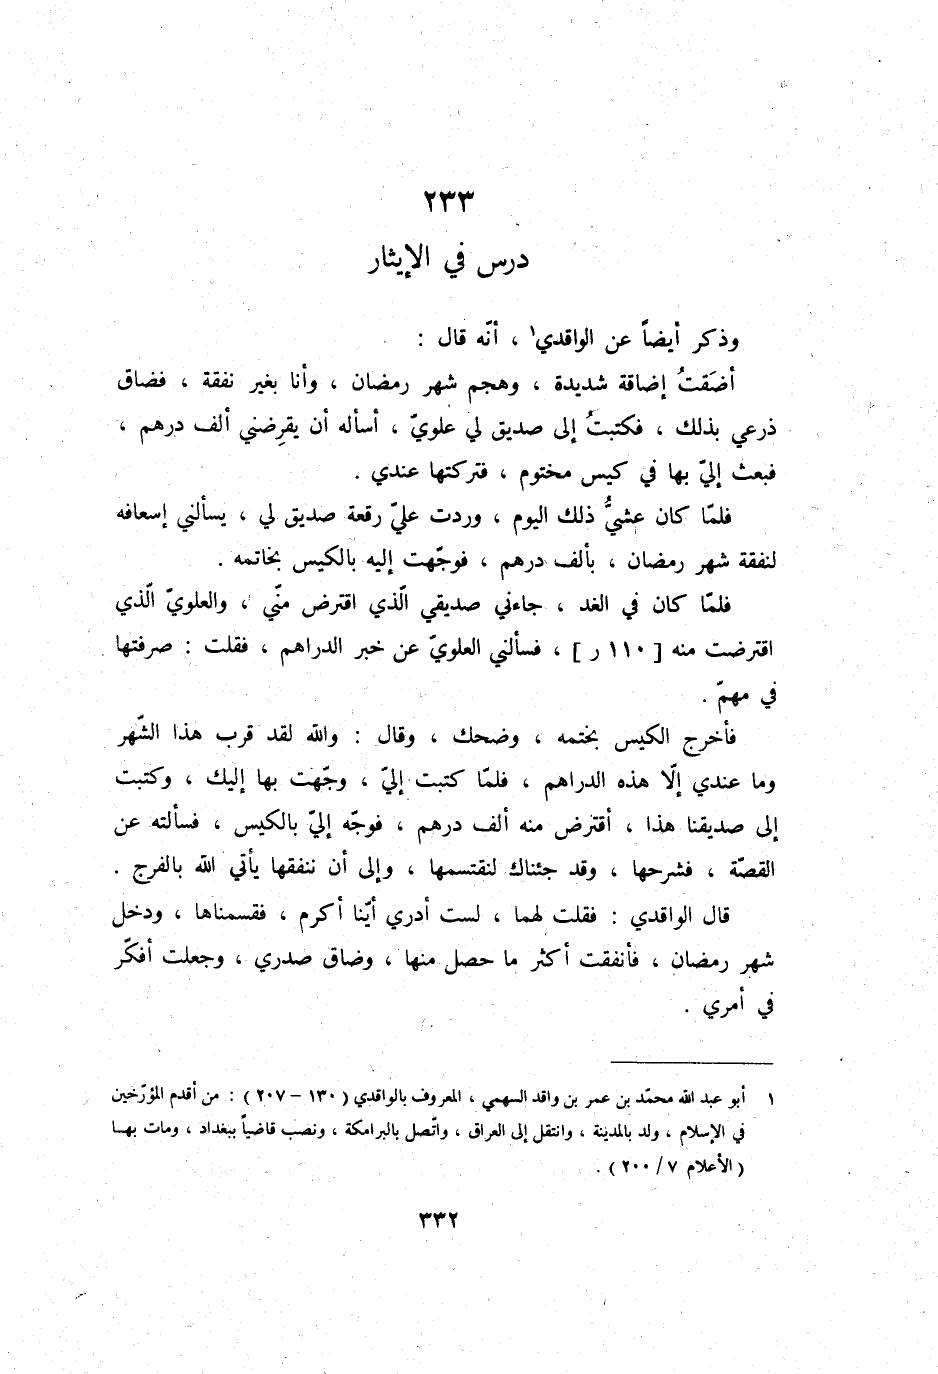 ٢٣٣
درس في الإيثار
وذكر أيضاً عن الواقدي١ ، أنّه قال :
أضَقتُ إضاقة شديدة ، وهجم شهر رمضان ، وأنا بغير نفقة ، فضاق
ذرعي بذلك ، فكتبتُ إلى صديق لي علويّ ، أسأله أن يقرِضني ألف درهم ،
فبعث إليّ بها في كيس مختوم ، فتركتها عندي .
فلمّا كان عشيُّ ذلك اليوم ، وردت عليّ رقعة صديق لي ، يسألني إسعافه
لنفقة شهر رمضان ، بألف درهم ، فوجّهت إليه بالكيس بخاتمه .
فلمّا كان في الغد ، جاءني صديقي الّذي اقترض منّي ، والعلويّ الّذي
اقترضت منه [ ١١٠ ر ] ، فسألني العلويّ عن خبر الدراهم ، فقلت : صرفتها
في مهمّ .
فأخرج الكيس بختمه ، وضحك ، وقال : والله لقد قرب هذا الشّهر
وما عندي إلّا هذه الدراهم ، فلمّا كتبت إليّ ، وجّهت بها إليك ، وكتبت
إلى صديقنا هذا ، أقترض منه ألف درهم ، فوجّه إليّ بالكيس ، فسألته عن
القصّة ، فشرحها ، وقد جئناك لنقتسمها ، وإلى أن ننفقها يأتي الله بالفرج .
قال الواقدي : فقلت لهما ، لست أدري أيّنا أكرم ، فقسمناها ، ودخل
شهر رمضان ، فأنفقت أكثر ما حصل منها ، وضاق صدري ، وجعلت أفكّر
في أمري .
١ أبو عبد الله محمّد بن عمر بن واقد السهمي ، المعروف بالواقدي ( ١٣٠ – ٢٠٧ ) : من أقدم المؤرّخين
في الإسلام ، ولد بالمدينة ، وانتقل إلى العراق ، واتّصل بالبرامكة ، ونصب قاضياً ببغداد ، ومات بهـا
( الأعلام ٧ / ٢٠٠ ) .
٣٣٢